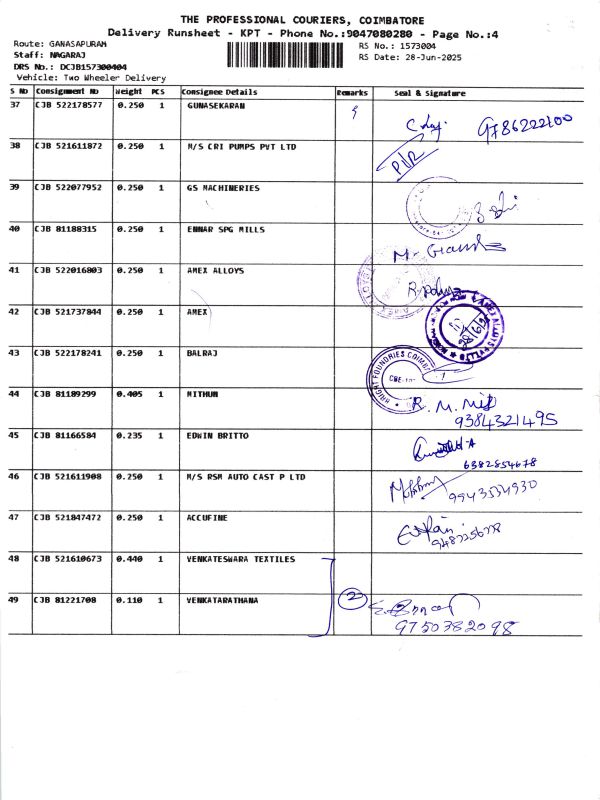 THE PROFESSIONAL COURIERS, COIMBATORE
Delivery Runsheet - KPT - Phone No.:9047080280 - Page No.:4
Route: GANASAPURAM
RS No.: 1573004
Staff: NAGARAJ
RS Date: 28-Jun-2025
DRS No.: DCJB157300404
Vehicle: Two Wheeler Delivery
S No Consignment No Weight PCS Consignee Details Remarks Seal & Signature
37 CJB 522178577 0.250 1 GUNASEKARAN
9786222100
38 CJB 521611872 0.250 1 M/S CRI PUMPS PVT LTD
39 CJB 522077952 0.250 1 GS MACHINERIES
40 CJB 81188315 0.250 1 ENNAR SPG MILLS
41 CJB 522016803 0.250 1 AMEX ALLOYS
42 CJB 521737844 0.250 1 AMEX
43 CJB 522178241 0.250 1 BALRAJ
44 CJB 81189299 0.405 1 MITHUN
R. M.
9384321495
45 CJB 81166584 0.235 1 EDWIN BRITTO
6382854678
46 CJB 521611908 0.250 1 M/S RSM AUTO CAST P LTD
9943534930
47 CJB 521847472 0.250 1 ACCUFINE
48 CJB 521610673 0.440 1 VENKATESWARA TEXTILES
49 CJB 81221708 0.110 1 VENKATARATHANA
2
9750382098